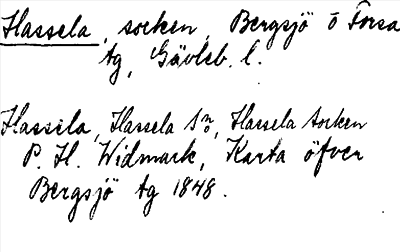 Hassela, socken, Bergsjö o Forsa
tg, Gävleb. l.
Hassela, Hassela sn, Hassela socken
P. H. Widmark, Karta öfver
Bergsjö tg 1848.